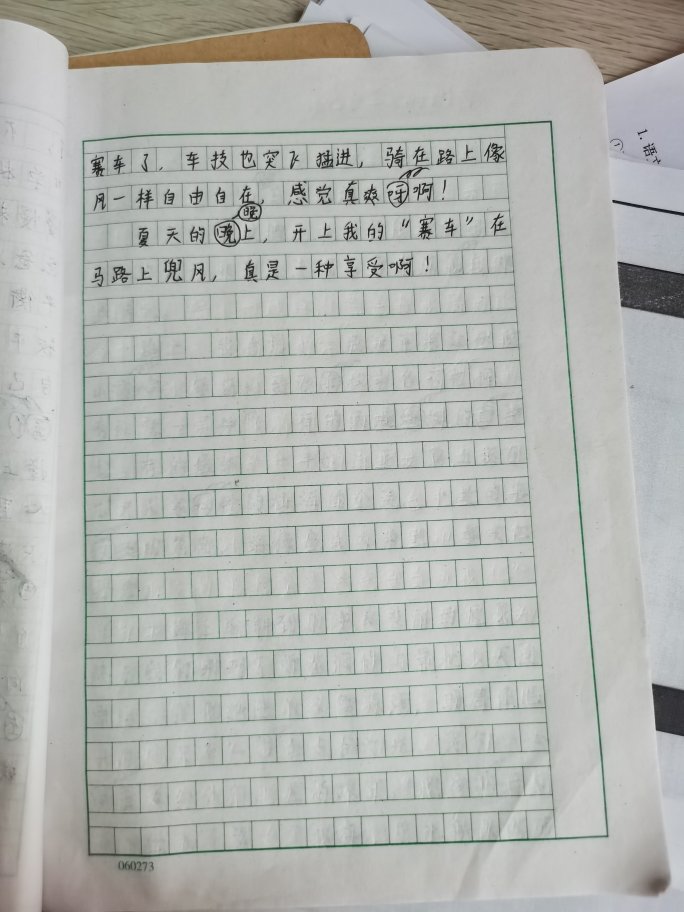 赛车了，车技也突飞猛进，骑在路上像
风一样自由自在，感觉真爽呀啊！
晚
夏天的晚上，开上我的“赛车”在
马路上兜风，真是一种享受啊！
060273
1.